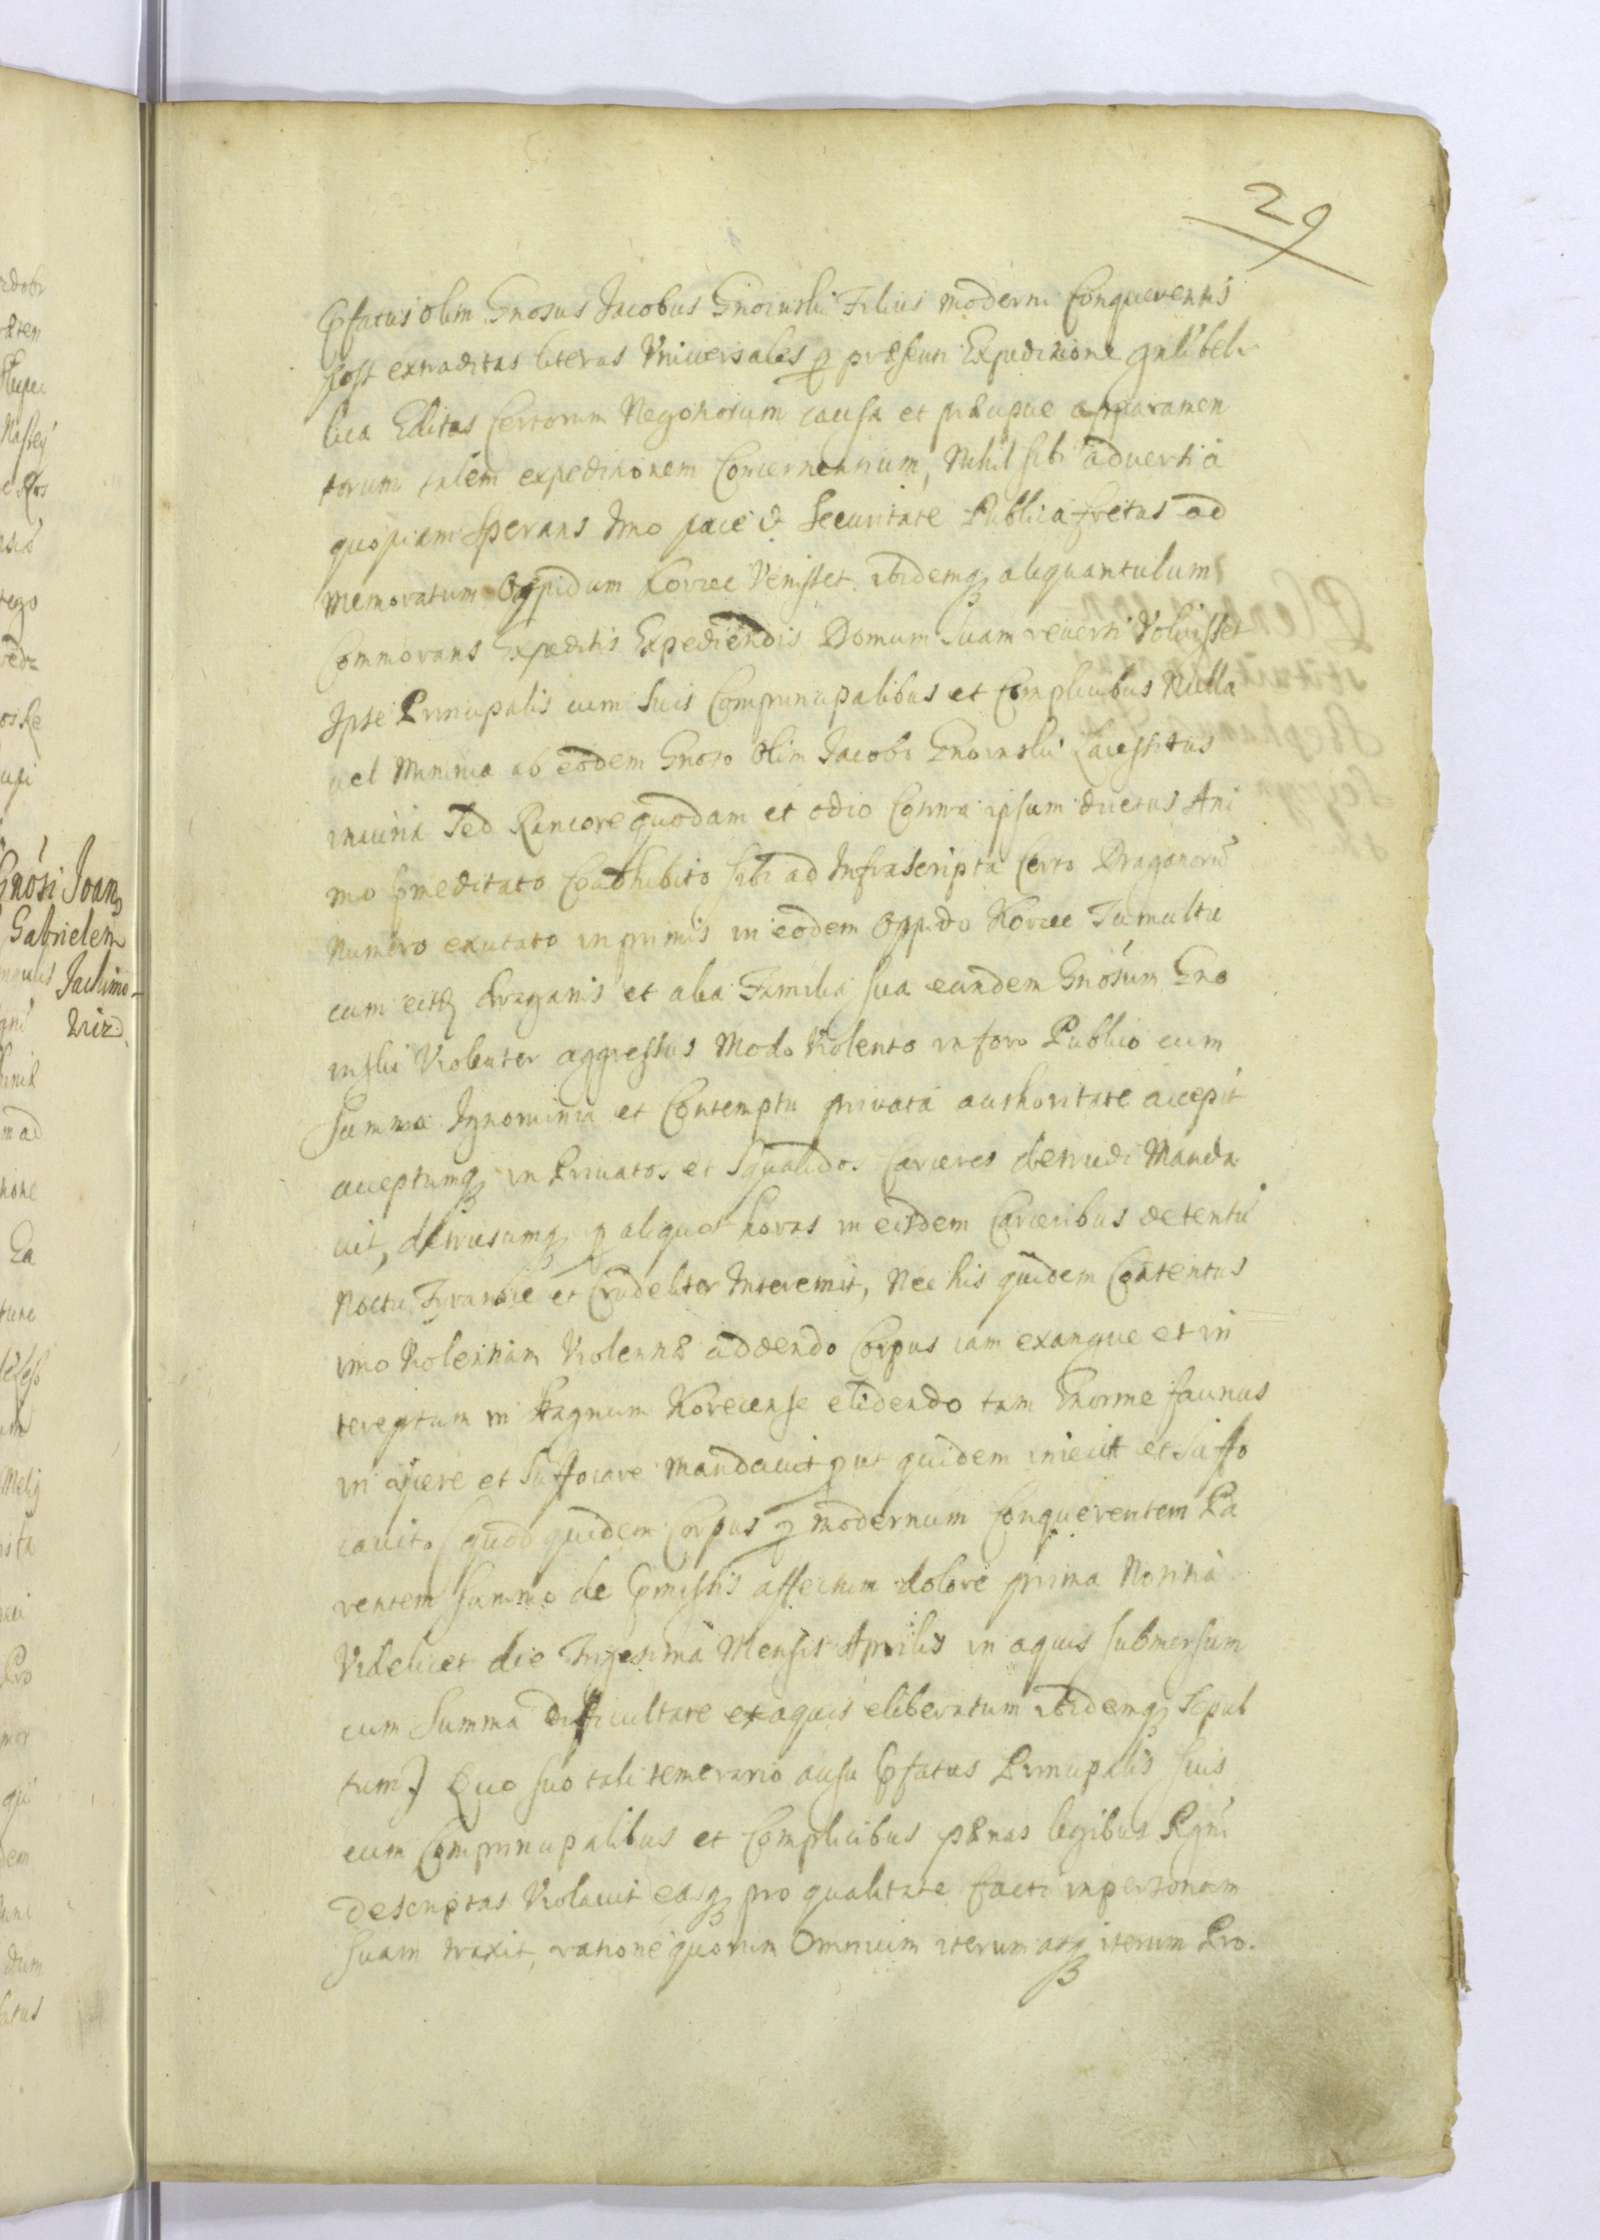 29
Pfatus olim Gnosus Jacobus Gnoinski Filius moderni Conquerentis
post extraditas literas Vniversales p præsenti Expeditione gnli bel
lica Editas Certorum Negotiorum causa et præcipue apparamen
torum talem expeditionem Concernentium, Nihil sibi aduersi à
quopiam Sperans Imo pace & Securitate Publica fretus ad
memoratum Oppidum Korzec Venisset ibidemq aliquantulum
Commorans Expeditis Expediendis Domum suam reuerti Voluisset
Ipse Principalis cum suis Comprincipalibus et Complicibus Nulla
uel Minima ab eodem Gnoso olim Jacobo Gnoinski Lacessitus
iniuria Sed Rancore quodam et odio Contra ipsum ductus Ani
mo præmeditato Coadhibito sibi ad Infrascripta Certo Draganorū
Numero excitato inprimis in eodem Oppido Korzec Tumultu
cum eisd Draganis et alia Familia sua eundem Gnosum Gno
inski Violenter aggressus Modo Violento in foro Publico cum
Summa Ignominia et Contemptu priuata authoritate accepit
acceptumq in Priuatos et Squalidos Carceres detrudi Manda
uit, detrusumq p aliquot horas in eisdem Carceribus detentū
Noctu Tyranice et Crudeliter Interemit, Nec his quidem Contentus
imo Violentiam Violentiæ addendo Corpus iam exangue et in
teremptum in Stagnum Korecense elidendo tam Enorme facinus
iniicere et Suffocare Mandauit put quidem iniecit et Suffo
cauit. (quod quidem Corpus p modernum Conquerentem Pa
rentem summo de Pmissis affectum dolore prima Notitia
Videlicet die Trigesima Mensis Aprilis in aquis submersum
cum Summa difficultate ex aquis eliberatum ibidemq Sepul
tum) Quo suo tali temerario ausu Pfatus Principalis suis
cum Comprincipalibus et Complicibus pænas legibus Rgni
descriptas Violauit easq pro qualitate facti in personam
Suam traxit, ratione quorum Omnium iterum atq iterum Pro.
Gnósi Joan
Gabrielem
Jachimo-
wicz